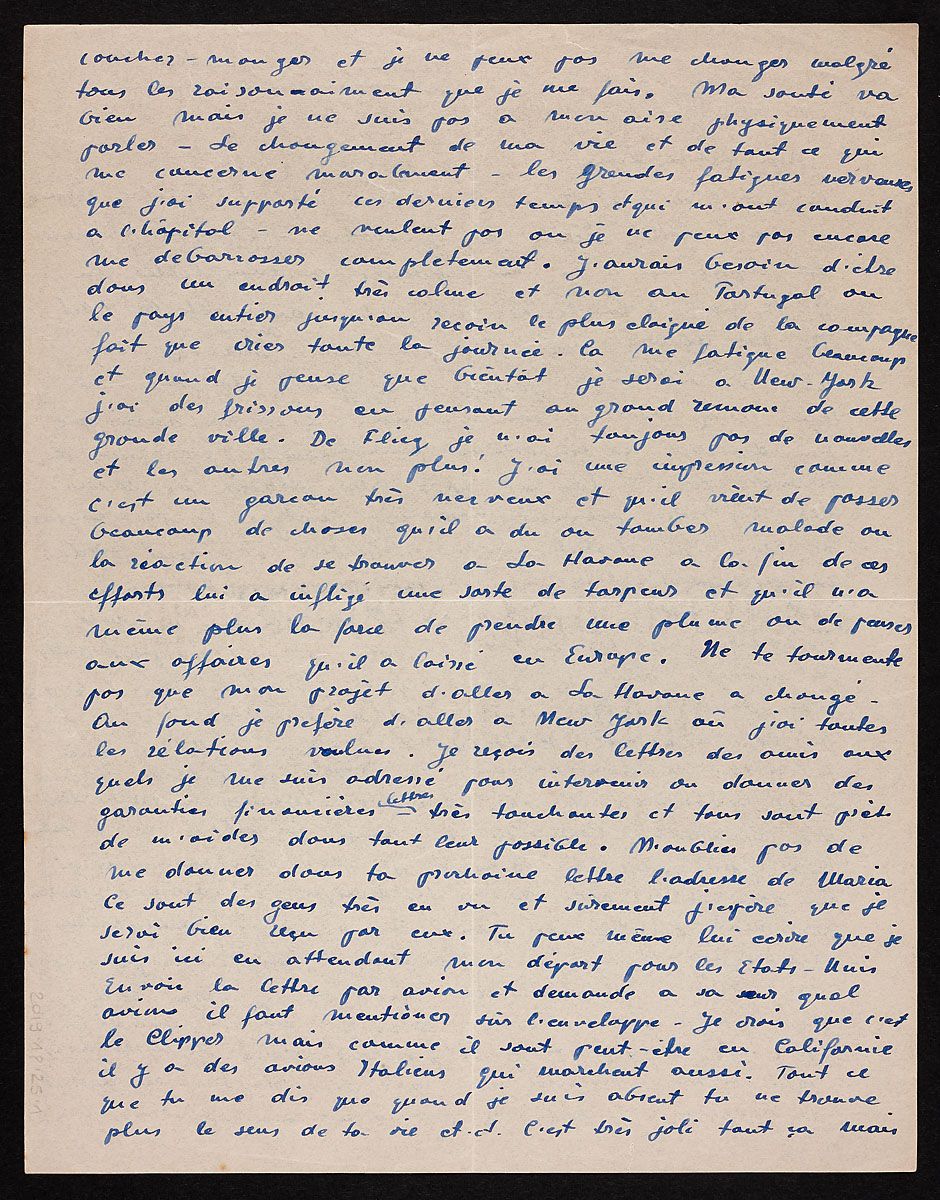 coucher - manger et je ne peux pas me changer malgré
tous les raisonnaiment que je me fais. Ma santé va
bien mais je ne suis pas a mon aise physiquement
parler - Le changement de ma vie et de tant ce qui
me concerne moralement - les grandes fatigues nerveuses
que j'ai supporté ces derniers temps et qui m'ont conduit
a l'hôpital - ne veulent pas ou je ne peux pas encore
me debarrasser completement. J'aurais besoin d'être
dans un endroit très calme et non au Portugal ou
le pays entier jusqu'au recoin le plus eloigné de la campagne
fait que crier toute la journée. Ca me fatigue beaucoup
et quand je pense que bientôt je serai a New-York
j'ai des frissons en pensant au grand remous de cette
grande ville. De Flieg je n'ai toujours pas de nouvelles
et les autres non plus! J'ai une impression comme
c'est un garcon très nerveux et qu'il vient de passer
beaucoup de choses qu'il a du ou tomber malade ou
la réaction de se trouver a La Havane a la fin de ces
efforts lui a infligé une sorte de torpeur et qu'il n'a
même plus la force de prendre une plume ou de penser
aux affaires qu'il a laissé en Europe. Ne te tourmente
pas que mon projèt d'aller a La Havane a changé -
Au fond je préfère d'aller a New York où j'ai toutes
les rélations voulues. Je reçois des lettres des amis aux
quels je me suis adressé pour intervenir ou donner des
garanties financières - lettres très touchantes et tous sont prêts
de m'aider dans tout leur possible. N'oublies pas de
me donner dans ta prochaine lettre l'adresse de Maria
Ce sont des gens très en vu et surement j'espère que je
serai bien reçu par eux. Tu peux même lui ecrire que je
suis ici en attendant mon départ pour les Etats-Unis
Envoie la lettre par avion et demande a sa sœur quel
avions il faut mentioner sur l'enveloppe - Je crois que c'est
le Clipper mais comme il sont peut-être en Californie
il y a des avions Italiens qui marchent aussi. Tout ce
que tu me dis que quand je suis absent tu ne trouve
plus le sens de ta vie et.ct. C'est très joli tout ça mais
2019.19/251